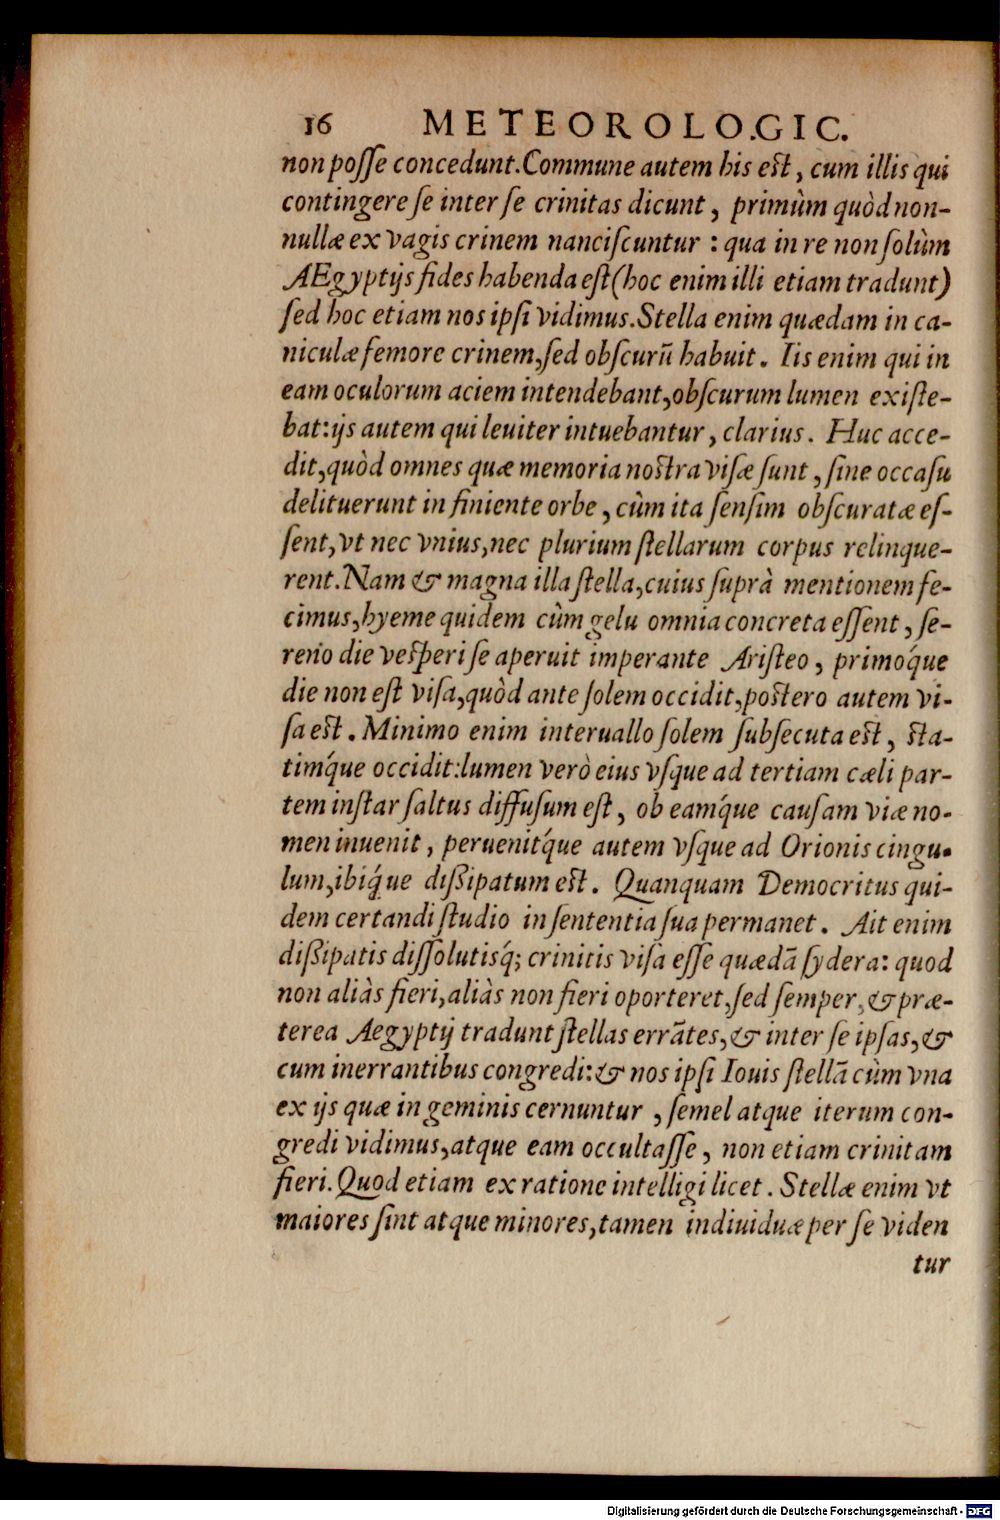 16 METEOROLOGIC.
non poſſe concedunt. Commune autem his eſt, cum illis qui
contingere ſe inter ſe crinitas dicunt, primùm quòd non-
nullæ ex vagis crinem nanciſcuntur : qua in re non ſolùm
AEgyptijs fides habenda eſt (hoc enim illi etiam tradunt)
ſed hoc etiam nos ipſi vidimus. Stella enim quædam in ca-
niculæ femore crinem, ſed obſcurū habuit. Iis enim qui in
eam oculorum aciem intendebant, obſcurum lumen exiſte-
bat: ijs autem qui leuiter intuebantur, clarius. Huc acce-
dit, quòd omnes quæ memoria noſtra viſæ ſunt, ſine occaſu
delituerunt in finiente orbe, cùm ita ſenſim obſcuratæ eſ-
ſent, vt nec vnius, nec plurium ſtellarum corpus relinque-
rent. Nam & magna illa ſtella, cuius ſuprà mentionem fe-
cimus, hyeme quidem cùm gelu omnia concreta eſſent, ſe-
reno die veſperi ſe aperuit imperante Ariſteo, primoq́ue
die non eſt viſa, quòd ante ſolem occidit, poſtero autem vi-
ſa eſt. Minimo enim interuallo ſolem ſubſecuta eſt, ſta-
timq́ue occidit: lumen verò eius vſque ad tertiam cæli par-
tem inſtar ſaltus diffuſum eſt, ob eamq́ue cauſam viæ no-
men inuenit, peruenitq́ue autem vſque ad Orionis cingu-
lum, ibiq́ue dißipatum eſt. Quanquam Democritus qui-
dem certandi ſtudio in ſententia ſua permanet. Ait enim
dißipatis diſſolutisq́; crinitis viſa eſſe quædā ſydera: quod
non aliàs fieri, aliàs non fieri oporteret, ſed ſemper, & præ-
terea Aegyptij tradunt ſtellas errātes, & inter ſe ipſas, &
cum inerrantibus congredi: & nos ipſi Iouis ſtellā cùm vna
ex ijs quæ in geminis cernuntur, ſemel atque iterum con-
gredi vidimus, atque eam occultaſſe, non etiam crinitam
fieri. Quod etiam ex ratione intelligi licet. Stellæ enim vt
maiores ſint atque minores, tamen indiuiduæ per ſe viden
tur
Digitalisierung gefördert durch die Deutsche Forschungsgemeinschaft - DFG